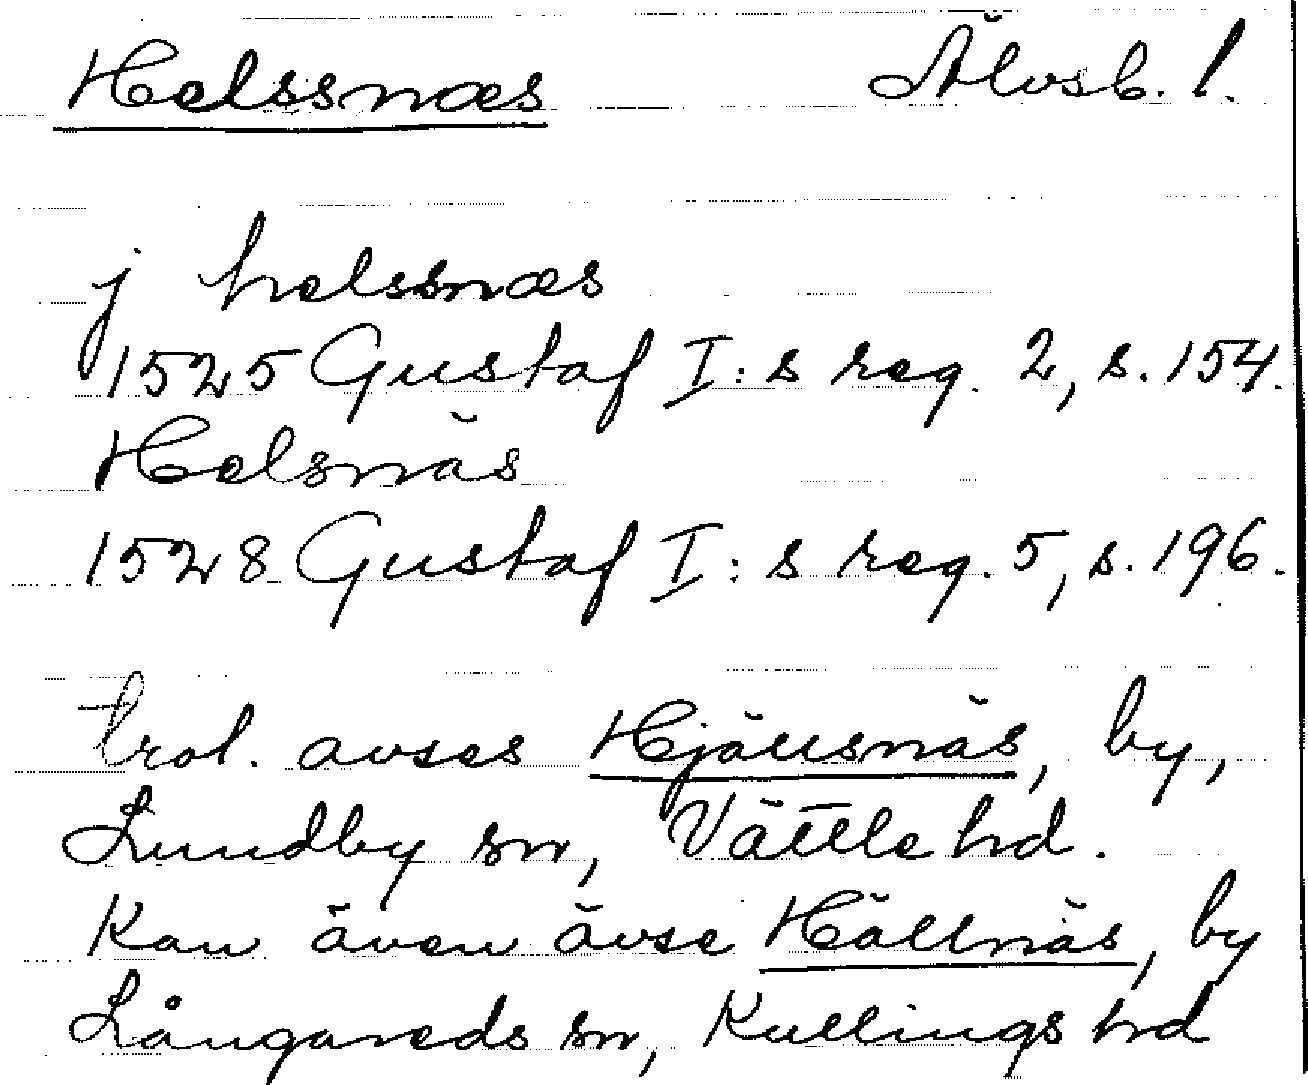 Helssnæs Älvsb. l.
j helssnæs
1525 Gustaf I:s reg. 2, s. 154.
Helsnäs
1528 Gustaf I:s reg. 5, s. 196.
trol. avses Hjälsnäs, by,
Lundby sn, Vättle hd.
Kan även ävse Hällnäs, by
Långareds sn, Kullings hd